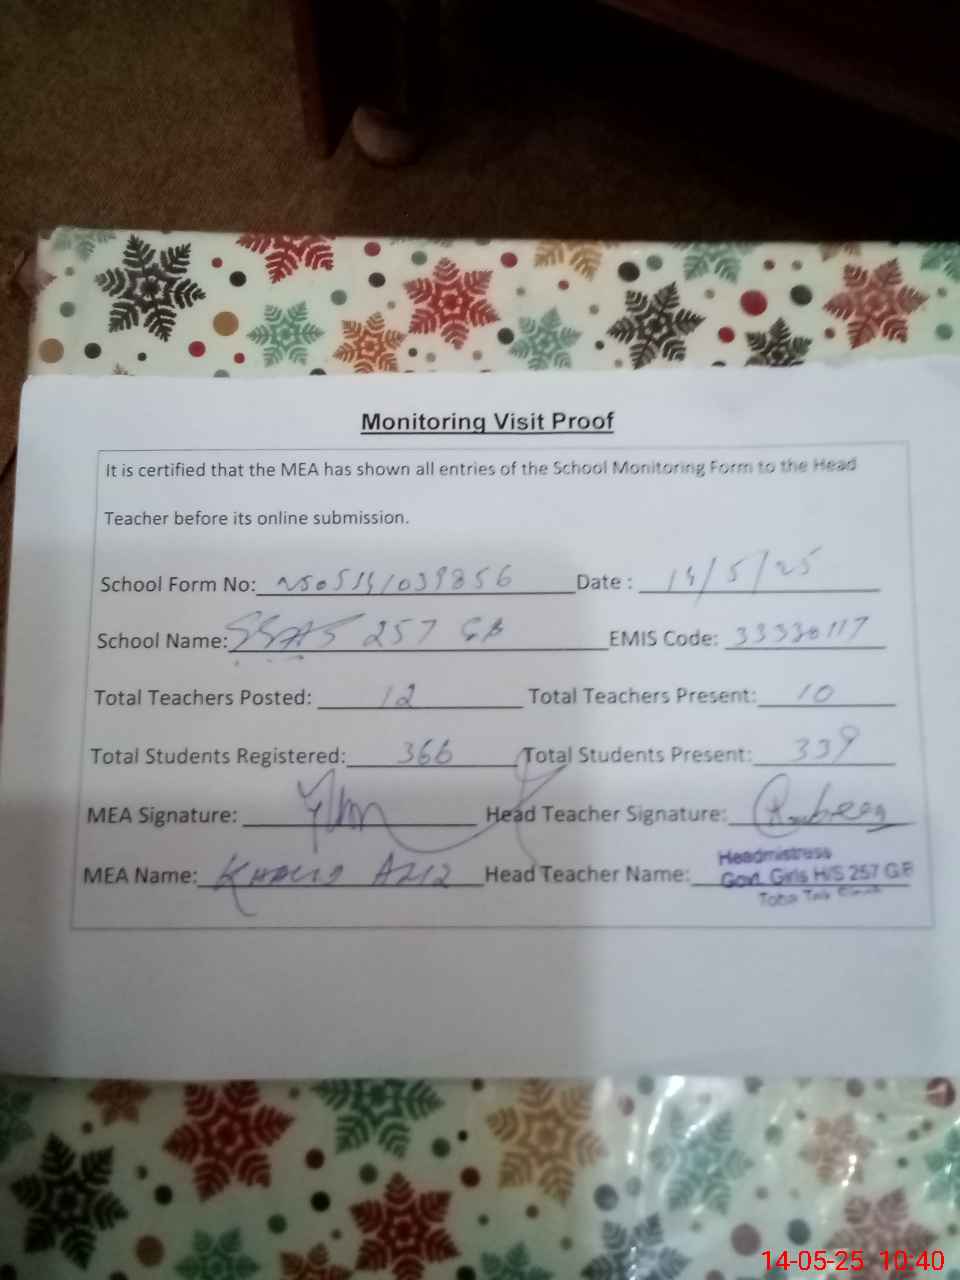 Monitoring Visit Proof
It is certified that the MEA has shown all entries of the School Monitoring Form to the Head
Teacher before its online submission.
School Form No: 250514/039856 Date : 14/5/25
School Name: 257 GB EMIS Code: 33330117
Total Teachers Posted: 12 Total Teachers Present: 10
Total Students Registered: 366 Total Students Present: 339
MEA Signature: Head Teacher Signature:
MEA Name: Khalid Aziz Head Teacher Name: Headmistress
Govt. Girls H/S 257 G.B
Toba Tek Singh
14-05-25 10:40